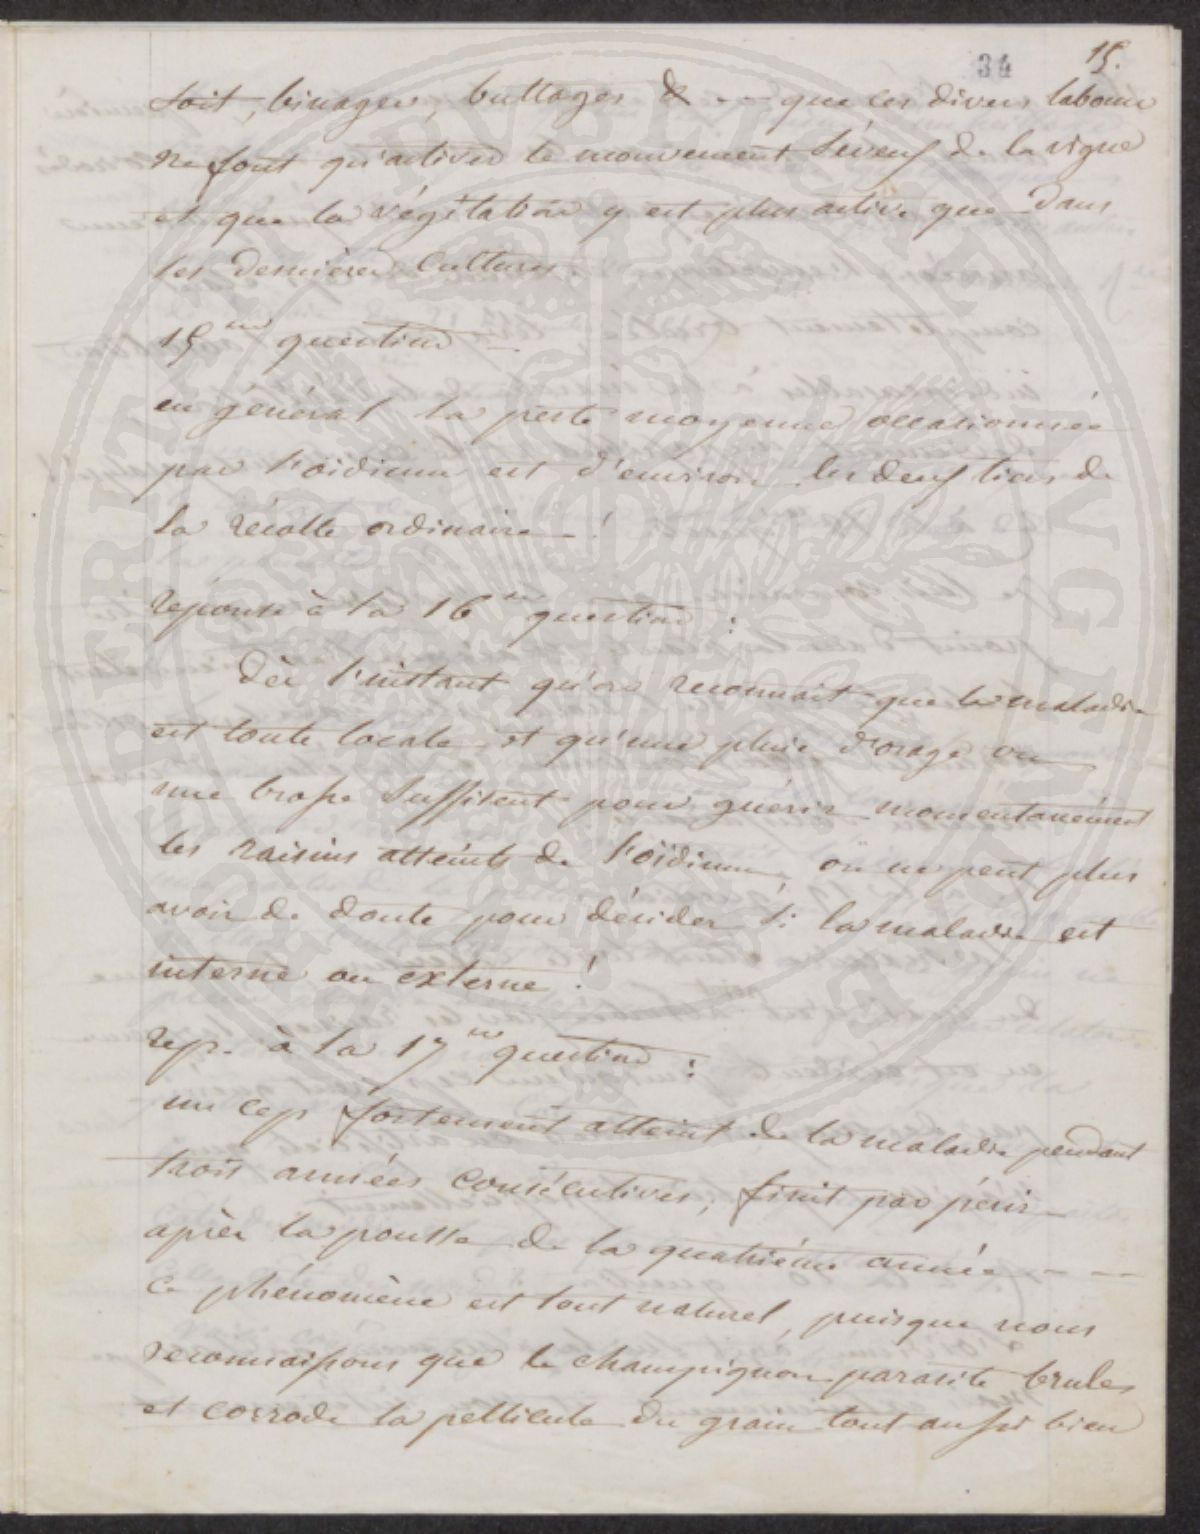 34 15.
soit, binages, buttages & -- que ces divers labours
ne font qu'activer le mouvement séveux de la vigne
et que la végétation y est plus active que dans
les dernières cultures.
15me question —
en général la perte moyenne occasionnée
par l'oïdium est d'environ les deux tiers de
la récolte ordinaire - !
réponse à la 16me question :
Dès l'instant qu'on reconnait que la maladie
est toute locale et qu'une pluie d'orage ou
une brosse suffisent pour guérir momentanément
les raisins atteints de l'oïdium, on ne peut plus
avoir de doute pour décider si la maladie est
interne ou externe !
rep. à la 17me question :
un cep fortement atteint de la maladie pendant
trois années consécutives, finit par périr
après la pousse de la quatrième année - —
ce phénomène est tout naturel, puisque nous
reconnaissons que le champignon parasite brule
et corrode la pellicule du grain tout aussi bien
SPERITE PVBLICAE AVGVM